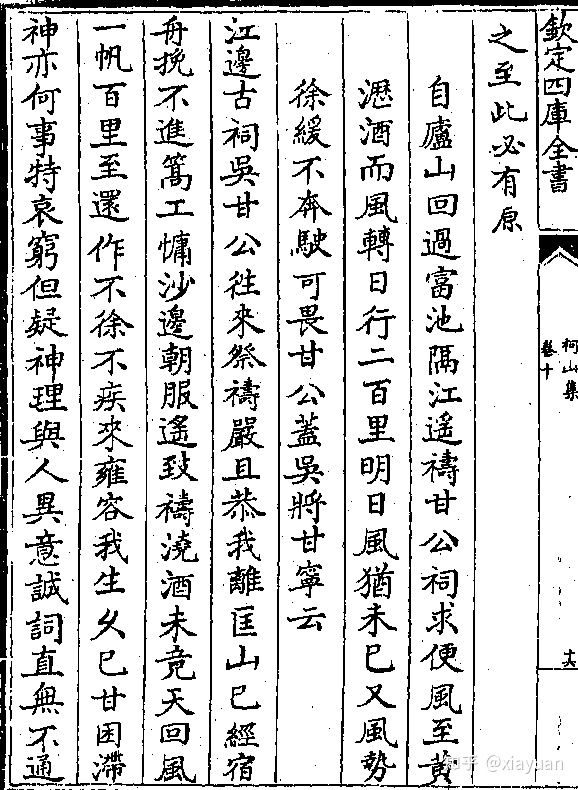 欽定四庫全書
柯山集
卷十
十六
之至此必有原
自廬山回過富池隔江遥禱甘公祠求便風至黄
瀝酒而風轉日行二百里明日風猶未已又風勢
徐緩不奔駛可畏甘公蓋吳將甘寧云
江邊古祠吳甘公徃來祭禱嚴且恭我離匡山已經宿
舟挽不進篙工慵沙邊朝服遙致禱澆酒未竟天回風
一帆百里至還作不徐不疾來雍容我生久已甘困滯
神亦何事特哀窮但疑神理與人異意誠詞直無不通
知乎 @xiayuan